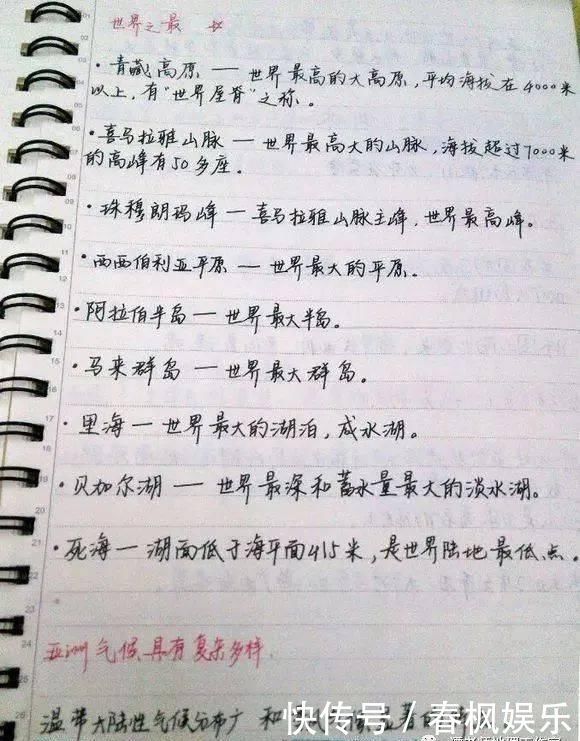 世界之最 ☆
·青藏高原 — 世界最高的大高原，平均海拔在4000米
以上，有"世界屋脊"之称。
·喜马拉雅山脉 — 世界最高大的山脉，海拔超过7000米
的高峰有50多座。
·珠穆朗玛峰 — 喜马拉雅山脉主峰，世界最高峰。
·西西伯利亚平原 — 世界最大的平原.
·阿拉伯半岛 — 世界最大半岛。
·马来群岛 — 世界最大群岛。
·里海 — 世界最大的湖泊，咸水湖。
·贝加尔湖 — 世界最深和蓄水量最大的淡水湖。
·死海 — 湖面低于海平面415米，是世界陆地最低点。
亚洲气候具有复杂多样.
温带大陆性气候分布广 和
快传号／春枫娱乐